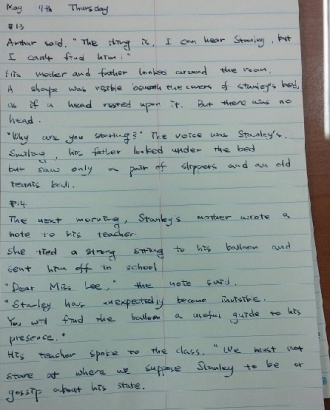 May 7th Thursday
P.13
Arthur said, "The thing is, I can hear Stanley, but
I can't find him."
His mother and father looked around the room.
A shape was visible beneath the covers of Stanley's bed,
as if a head rested upon it. But there was no
head.
"Why are you staring?" The voice was Stanley's.
Smiling, his father looked under the bed
but saw only a pair of slippers and an old
tennis ball.
P.14
The next morning, Stanley's mother wrote a
note to his teacher.
She tied a strong string to his balloon and
sent him off in school
"Dear Miss Lee," the note said.
"Stanley has unexpectedly become invisible.
You will find the balloon a useful guide to his
presence."
His teacher spoke to the class. "We must not
stare at where we suppose Stanley to be or
gossip about his state.